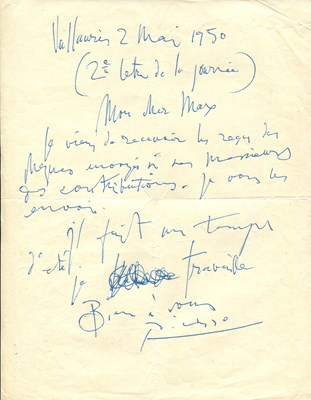 Vallauris 2 Mai 1950
(2e lettre de la journée)
Mon cher Max
Je viens de recevoir les reçus des
chèques envoyés à ces messieurs
des contributions. Je vous les
envoie.
Il fait un temps
d'été.
je travaille
Bien à vous
Picasso